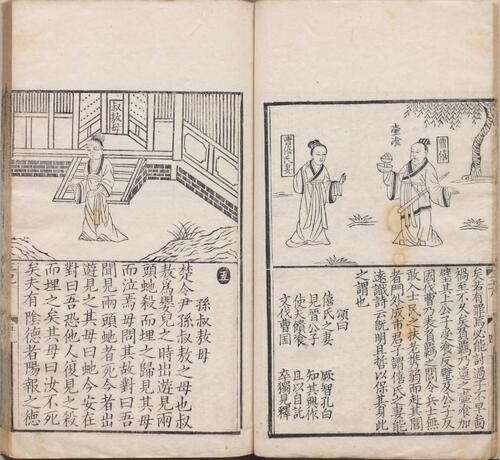 曹僖
壺飡
曹僖氏妻
矣若有罪焉必能討過子不早圖
禍至不久矣僖負羈乃遺之壺飡加
璧其上公子受飡反璧及公子反
國伐曹乃表負羈之閭令兵士無
敢入士民之扶老攜弱而赴其閭
者門外成市君子謂僖氏之妻能
遠識詩云既明且哲以保其身此
之謂也
頌曰
僖氏之妻 厥智孔白
見晉公子 知其興作
使夫饋飡 且以自託
文伐曹國 卒獨見釋
叔敖母
五
孫叔敖母
楚令尹孫叔敖之母也叔
敖為嬰兒之時出遊見兩
頭蛇殺而埋之歸見其母
而泣焉母問其故對曰吾
聞見兩頭蛇者死今者出
遊見之其母曰蛇今安在
對曰吾恐他人復見之殺
而埋之矣其母曰汝不死
矣夫有陰德者陽報之德